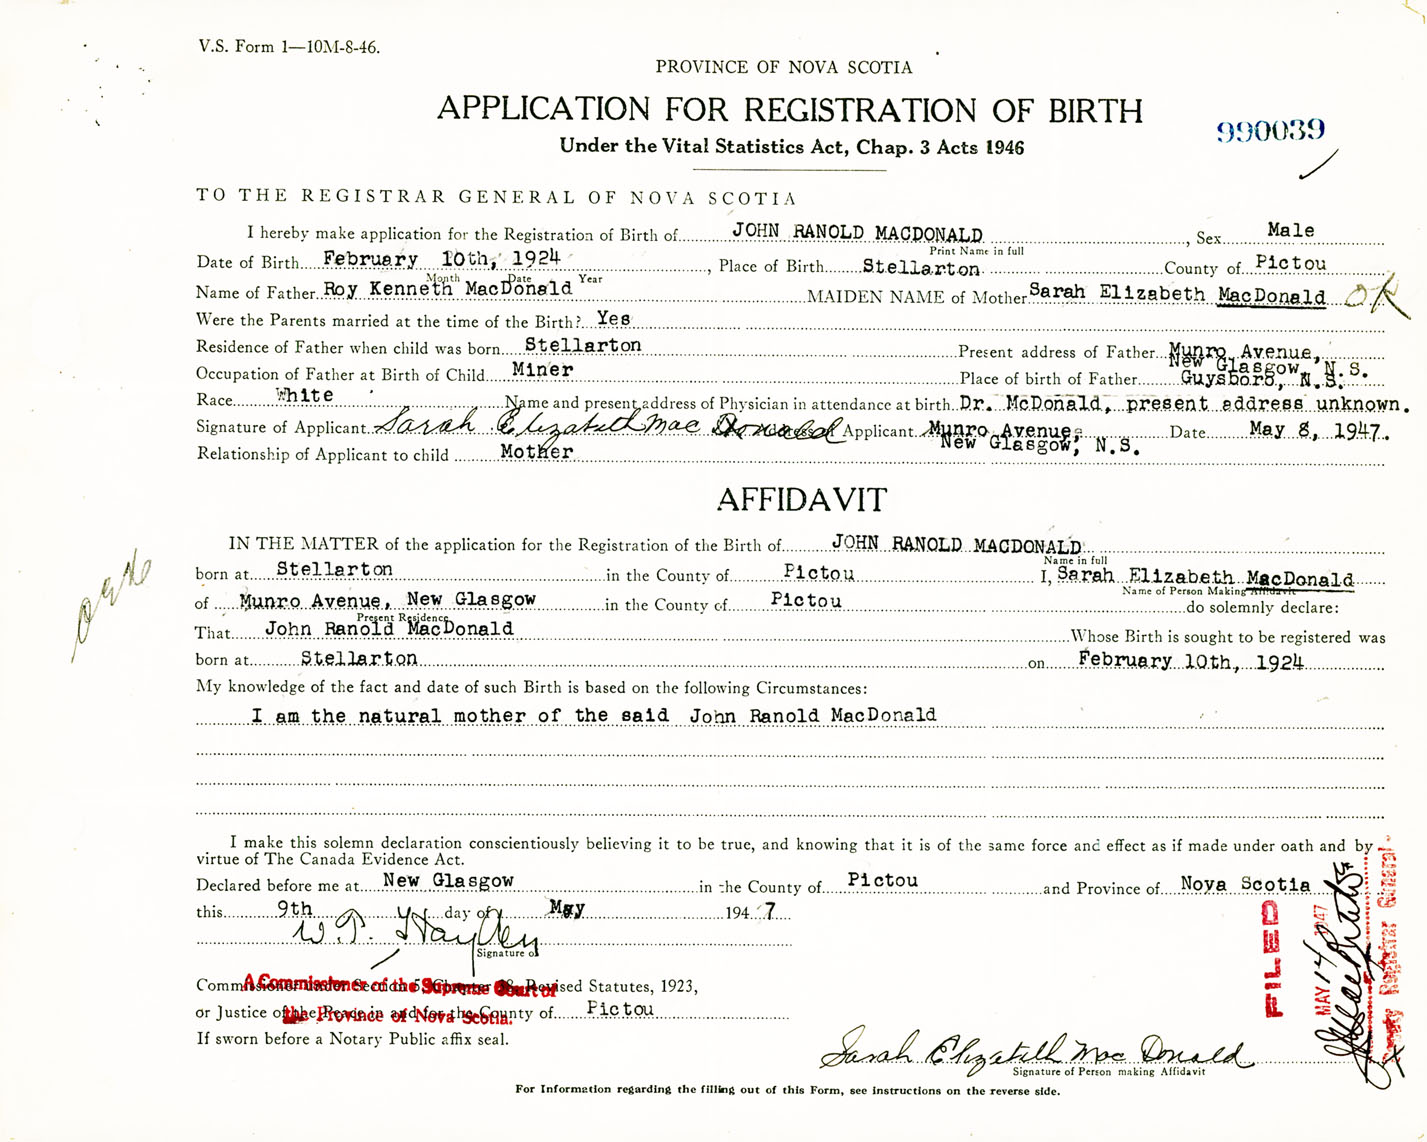 V.S. Form 1—10M-8-46.
PROVINCE OF NOVA SCOTIA
APPLICATION FOR REGISTRATION OF BIRTH
990039
Under the Vital Statistics Act, Chap. 3 Acts 1946
TO THE REGISTRAR GENERAL OF NOVA SCOTIA
I hereby make application for the Registration of Birth of JOHN RANOLD MACDONALD, Sex Male
Print Name in full
Date of Birth February 10th, 1924, Place of Birth Stellarton County of Pictou
Month Date Year
Name of Father Roy Kenneth MacDonald MAIDEN NAME of Mother Sarah Elizabeth MacDonald OK
Were the Parents married at the time of the Birth? Yes
Residence of Father when child was born Stellarton Present address of Father Munro Avenue,
New Glasgow, N.S.
Occupation of Father at Birth of Child Miner Place of birth of Father Guysboro, N.S.
Race White Name and present address of Physician in attendance at birth Dr. McDonald, present address unknown.
Signature of Applicant Sarah Elizabeth MacDonald Address of Applicant Munro Avenue, Date May 8, 1947.
New Glasgow, N.S.
Relationship of Applicant to child Mother
AFFIDAVIT
IN THE MATTER of the application for the Registration of the Birth of JOHN RANOLD MACDONALD
Name in full
born at Stellarton in the County of Pictou I, Sarah Elizabeth MacDonald
Name of Person Making Affidavit
of Munro Avenue, New Glasgow in the County of Pictou do solemnly declare:
Present Residence
That John Ranold MacDonald Whose Birth is sought to be registered was
born at Stellarton on February 10th, 1924
My knowledge of the fact and date of such Birth is based on the following Circumstances:
I am the natural mother of the said John Ranold MacDonald
I make this solemn declaration conscientiously believing it to be true, and knowing that it is of the same force and effect as if made under oath and by
virtue of The Canada Evidence Act.
Declared before me at New Glasgow in the County of Pictou and Province of Nova Scotia
this 9th day of May 1947
W. P. Hayden
Signature of
Commissioner under Section 5, Chapter 38, Revised Statutes, 1923,
A Commissioner of the Supreme Court of
or Justice of the Peace in and for the County of Pictou
the Province of Nova Scotia.
If sworn before a Notary Public affix seal.
Sarah Elizabeth MacDonald
Signature of Person making Affidavit
For Information regarding the filling out of this Form, see instructions on the reverse side.
FILED
MAY 14 1947
Deputy Registrar General